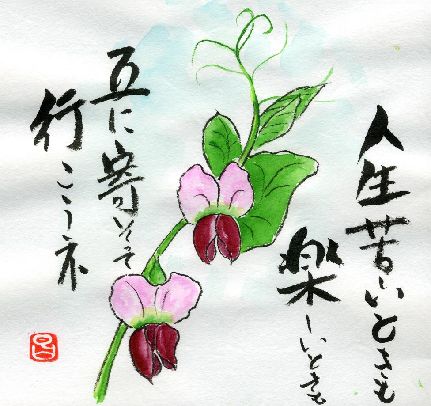 人生苦いときも
楽しいときも
互に寄りそって
行こうネ